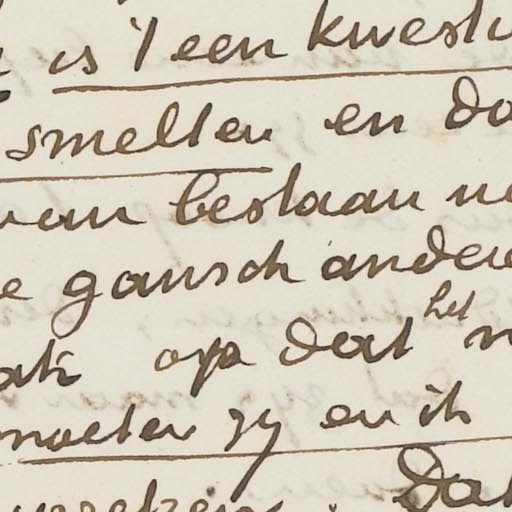 is 't een kwesti
smelten en da
van bestaan n
e gansch andere
ak op dat het n
moeten zy en ik
Dat